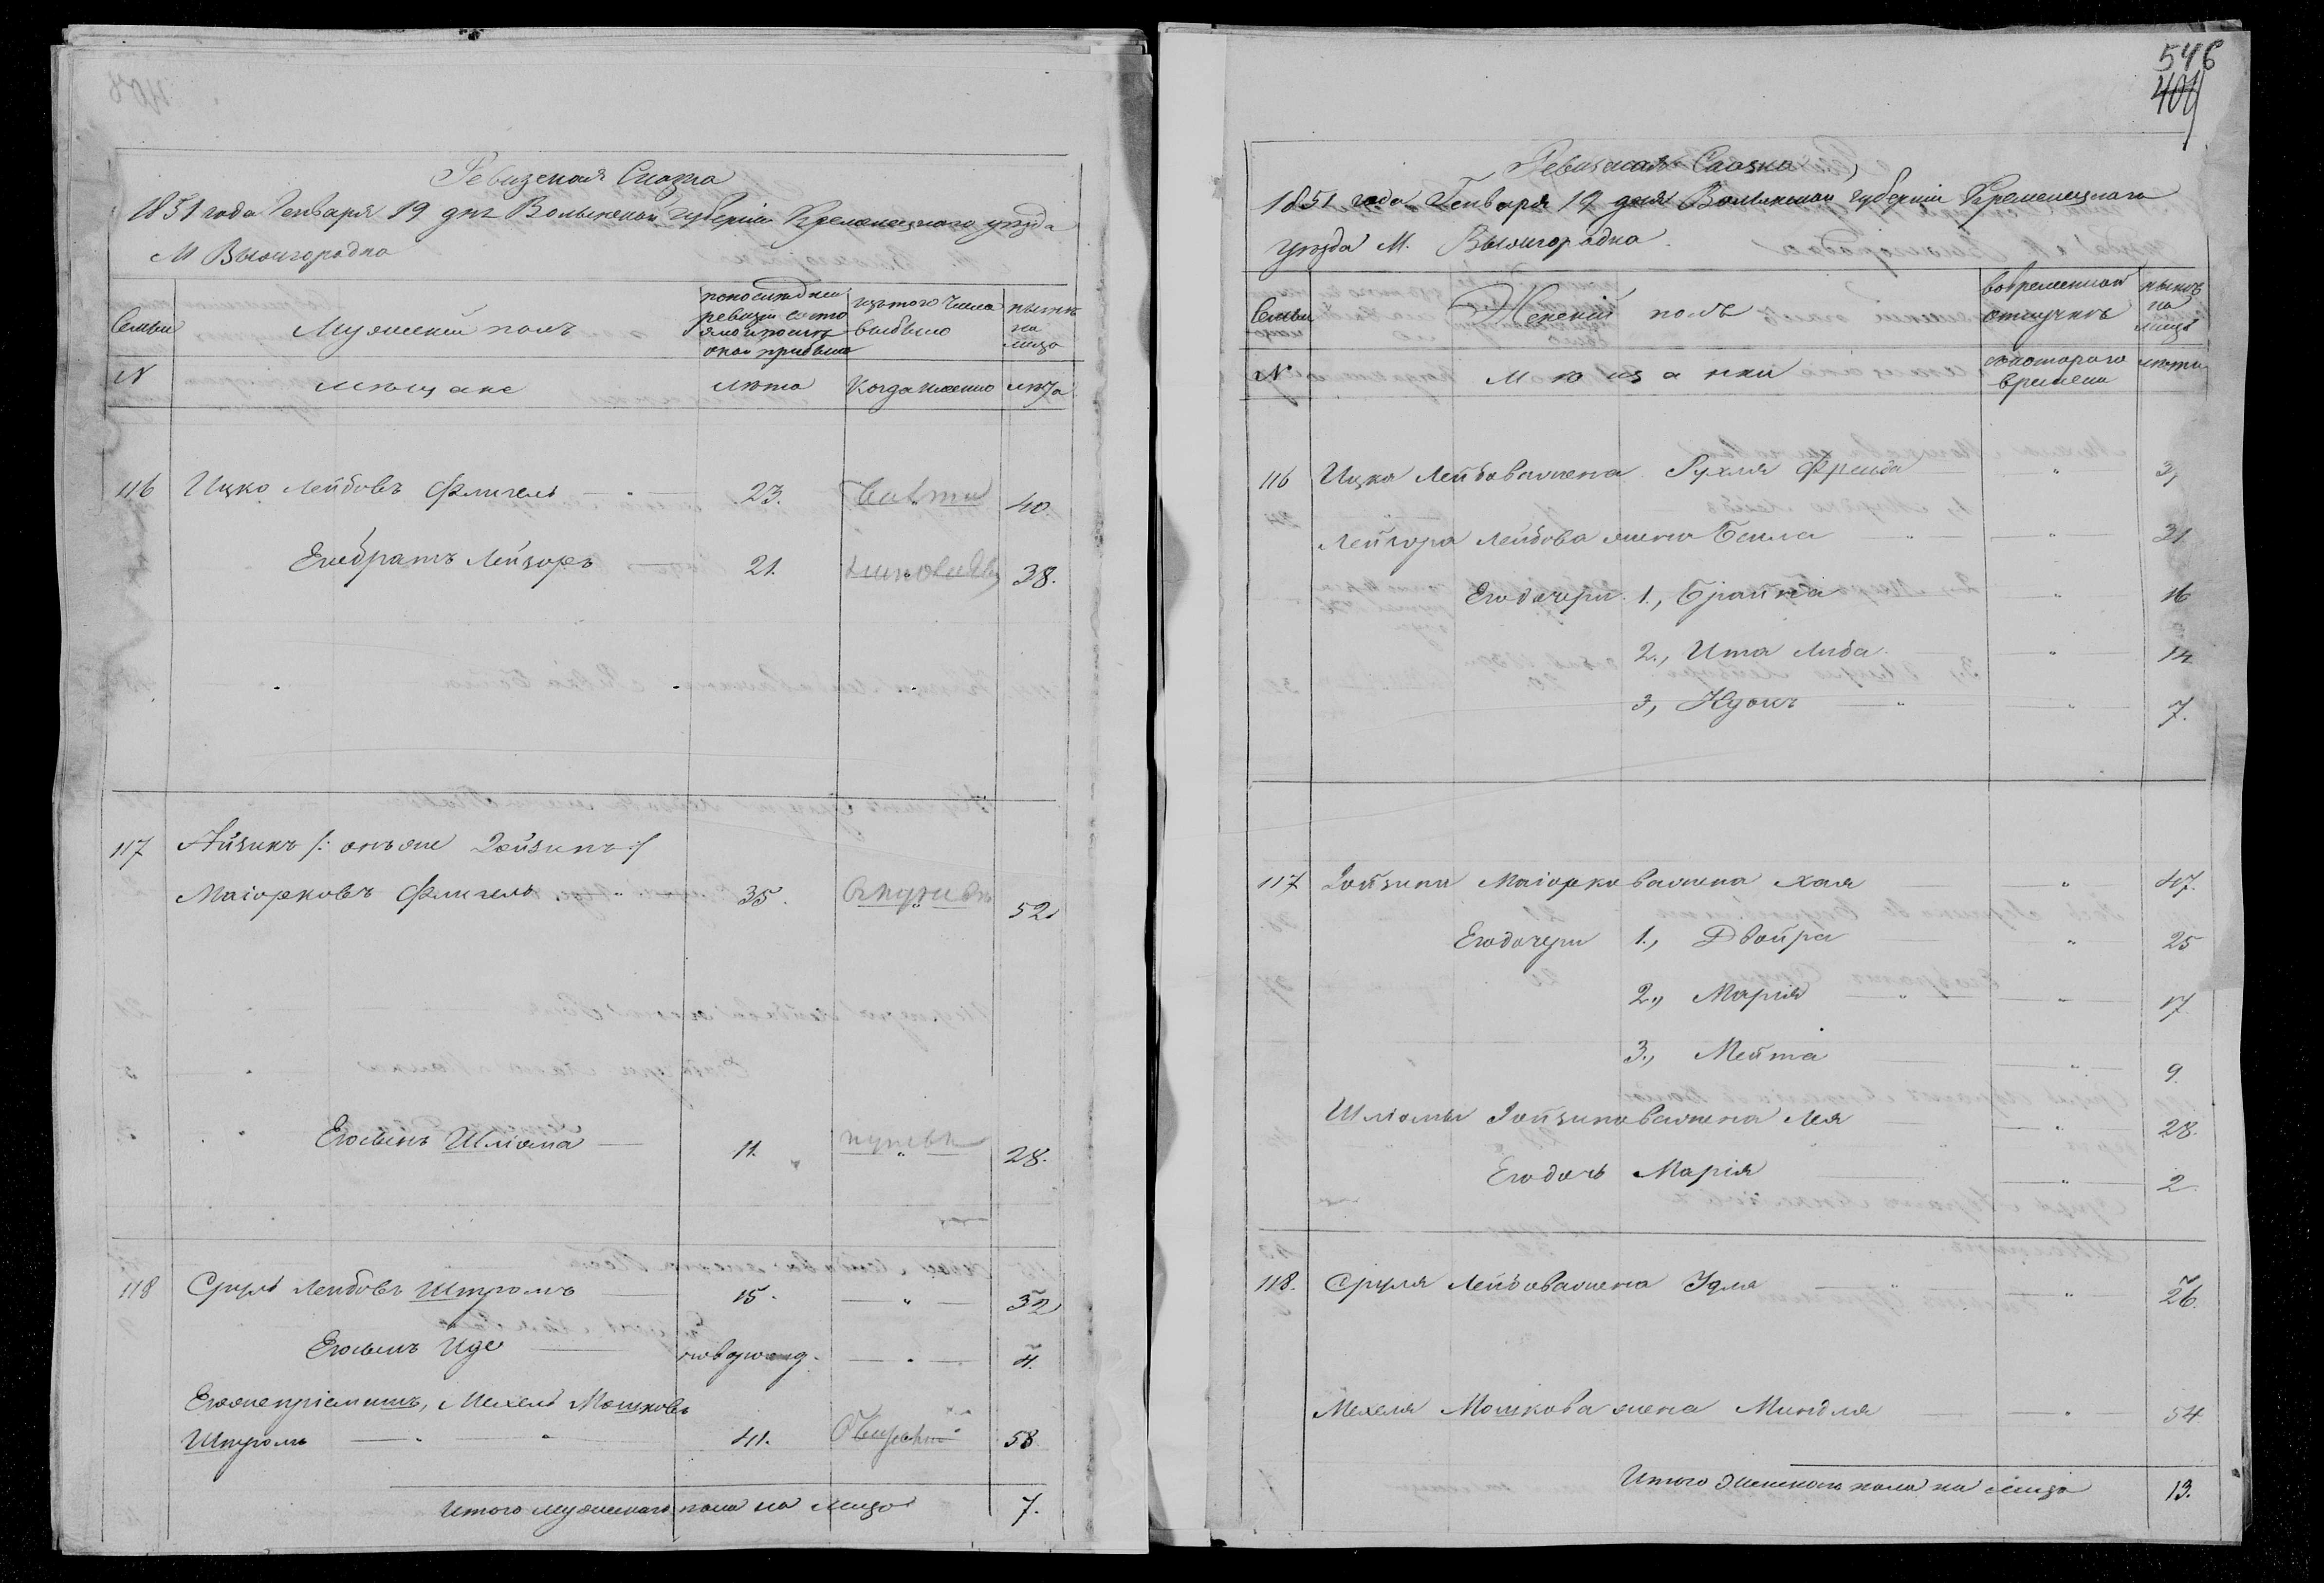 Ревизская Сказка
1851 года Генваря 19 дня Волынской Губернии Кременецкаго уезда
М Вышгородка
Семьи
Мужеский полъ
по последней
ревизіи состо
яло и после
оной прибыло
изъ того числа
выбыло
ныне
на
лицо
N
мещане
лета
Когда именно
лета
116 Ицко Лейбовъ Флигель — " — 23. 40.
Его братъ Лейзоръ — 21. 38.
117 Айзикъ /: онъ же Зойзикъ :/
Маіорковъ Флигель — " — 35. 52.
Его сынъ Шліома — 11. 28.
118 Сруль Лейбовъ Штромъ — 15. — " — 32
Его сынъ Иде — новорожд. — " — 4.
Егоже пріемышъ, Мехель Мошковъ
Штромъ — " — 41. 58
Итого мужескаго пола на лицо 7.
546
Ревизская Сказка
1851 года Генваря 19 дня Волынской Губерніи Кременецкаго
уезда М. Вышгородка.
Семьи
Женскій полъ
вовременной
отлучке
ныне
на
лицо
N
Мещанки
скотораго
времени
лета
116 Ицка Лейбова жена Рухля Фрейда "
Лейзора Лейбова жена Бейла " — " — 31
Его дочери 1., Брайна " 16
2., Ита Либа " 14
3, " — " — 7.
117 Зойзика Маіоркова жена Хая " 47.
Его дочери 1., Двойра " 25
2., Марія — " — 17
3., Мейта " 9.
Шліомы Зойзикова жена Лея " 28.
Его дочь Марія " 2
118. Сруля Лейбова жена Удля " — " — 26.
Мехеля Мошкова жена Миндля — " 54
Итого Женскаго пола на лицо 13.